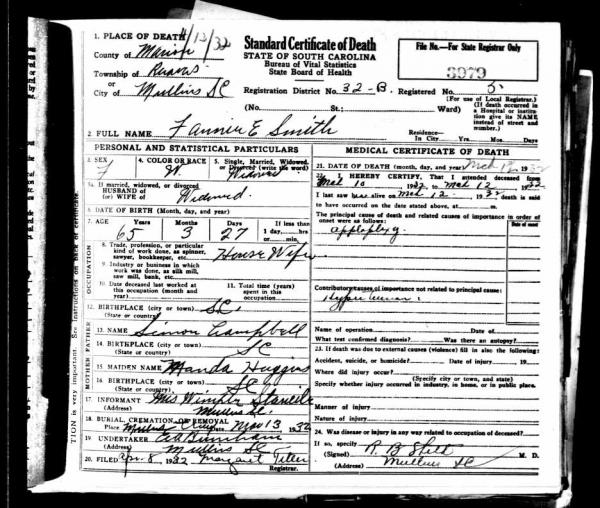 1. PLACE OF DEATH 4/13/32
County of Marion
Township of Reaves
or
City of Mullins SC
Standard Certificate of Death
STATE OF SOUTH CAROLINA
Bureau of Vital Statistics
State Board of Health
File No.—For State Registrar Only
3979
Registration District No. 32-B. Registered No. 5
(For use of Local Registrar.)
(No. St.; Ward)
(If death occurred in
a Hospital or institu-
tion give its NAME
instead of street and
number.)
2. FULL NAME Fannie E Smith
Residence—
In City Yrs. Mos. Days
PERSONAL AND STATISTICAL PARTICULARS
3. SEX
F
4. COLOR OR RACE
W.
5. Single, Married, Widowed,
or Divorced (write the word)
Widowed
5a. If married, widowed, or divorced
HUSBAND of
(or) WIFE of Widowed
6. DATE OF BIRTH (Month, day, and year)
7. AGE Years Months Days If less than
1 day, hrs
or min.
65 3 27
OCCUPATION
8. Trade, profession, or particular
kind of work done, as spinner,
sawyer, bookkeeper, etc. House Wife
9. Industry or business in which
work was done, as silk mill,
saw mill, bank, etc.
10. Date deceased last worked at
this occupation (month and
year)
11. Total time (years)
spent in this
occupation
12. BIRTHPLACE (city or town) SC.
(State or country)
FATHER
13. NAME Simon Campbell
14. BIRTHPLACE (city or town) SC
(State or country)
MOTHER
15. MAIDEN NAME Huggins
16. BIRTHPLACE (city or town) SC
(State or country)
17. INFORMANT Mrs
(Address) Mullins SC.
18. BURIAL, CREMATION, OR REMOVAL
Place Mullins 13 1932
19. UNDERTAKER
(Address) Mullins SC
20. FILED Apr. 8 1932 Margaret
Registrar.
MEDICAL CERTIFICATE OF DEATH
21. DATE OF DEATH (month, day, and year) Mch 12 1932
22. I HEREBY CERTIFY, That I attended deceased from
Mch 10 1932 to Mch 12 1932
I last saw alive on Mch 12 1932 death is said
to have occurred on the date stated above, at m.
The principal cause of death and related causes of importance in order of
onset were as follows:
Date of onset
Contributory causes of importance not related to principal cause:
Name of operation Date of
What test confirmed diagnosis? Was there an autopsy?
23. If death was due to external causes (violence) fill in also the following:
Accident, suicide, or homicide? Date of injury 19
Where did injury occur?
(Specify city or town, and state)
Specify whether injury occurred in industry, in home, or in public place.
Manner of injury
Nature of injury
24. Was disease or injury in any way related to occupation of deceased?
If so, specify
(Signed) R. B. M. D.
(Address) Mullins SC
TION is very important. See instructions on back of certificate.